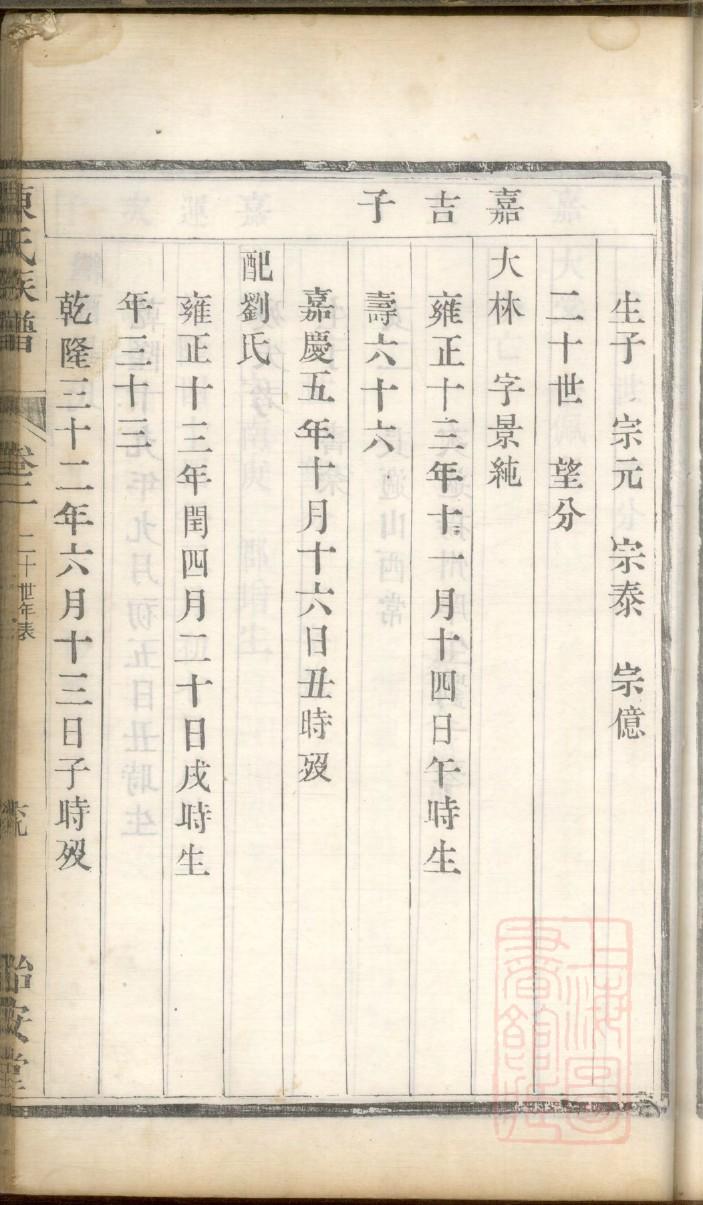 嘉吉子
生子 宗元 宗泰 宗億
二十世 望分
大林 字景純
雍正十三年十一月十四日午時生
壽六十六
嘉慶五年十月十六日丑時歿
配劉氏
雍正十三年閏四月二十日戌時生
年三十三
乾隆三十二年六月十三日子時歿
陳氏族譜
卷二
二十世年表
上海圖書館藏